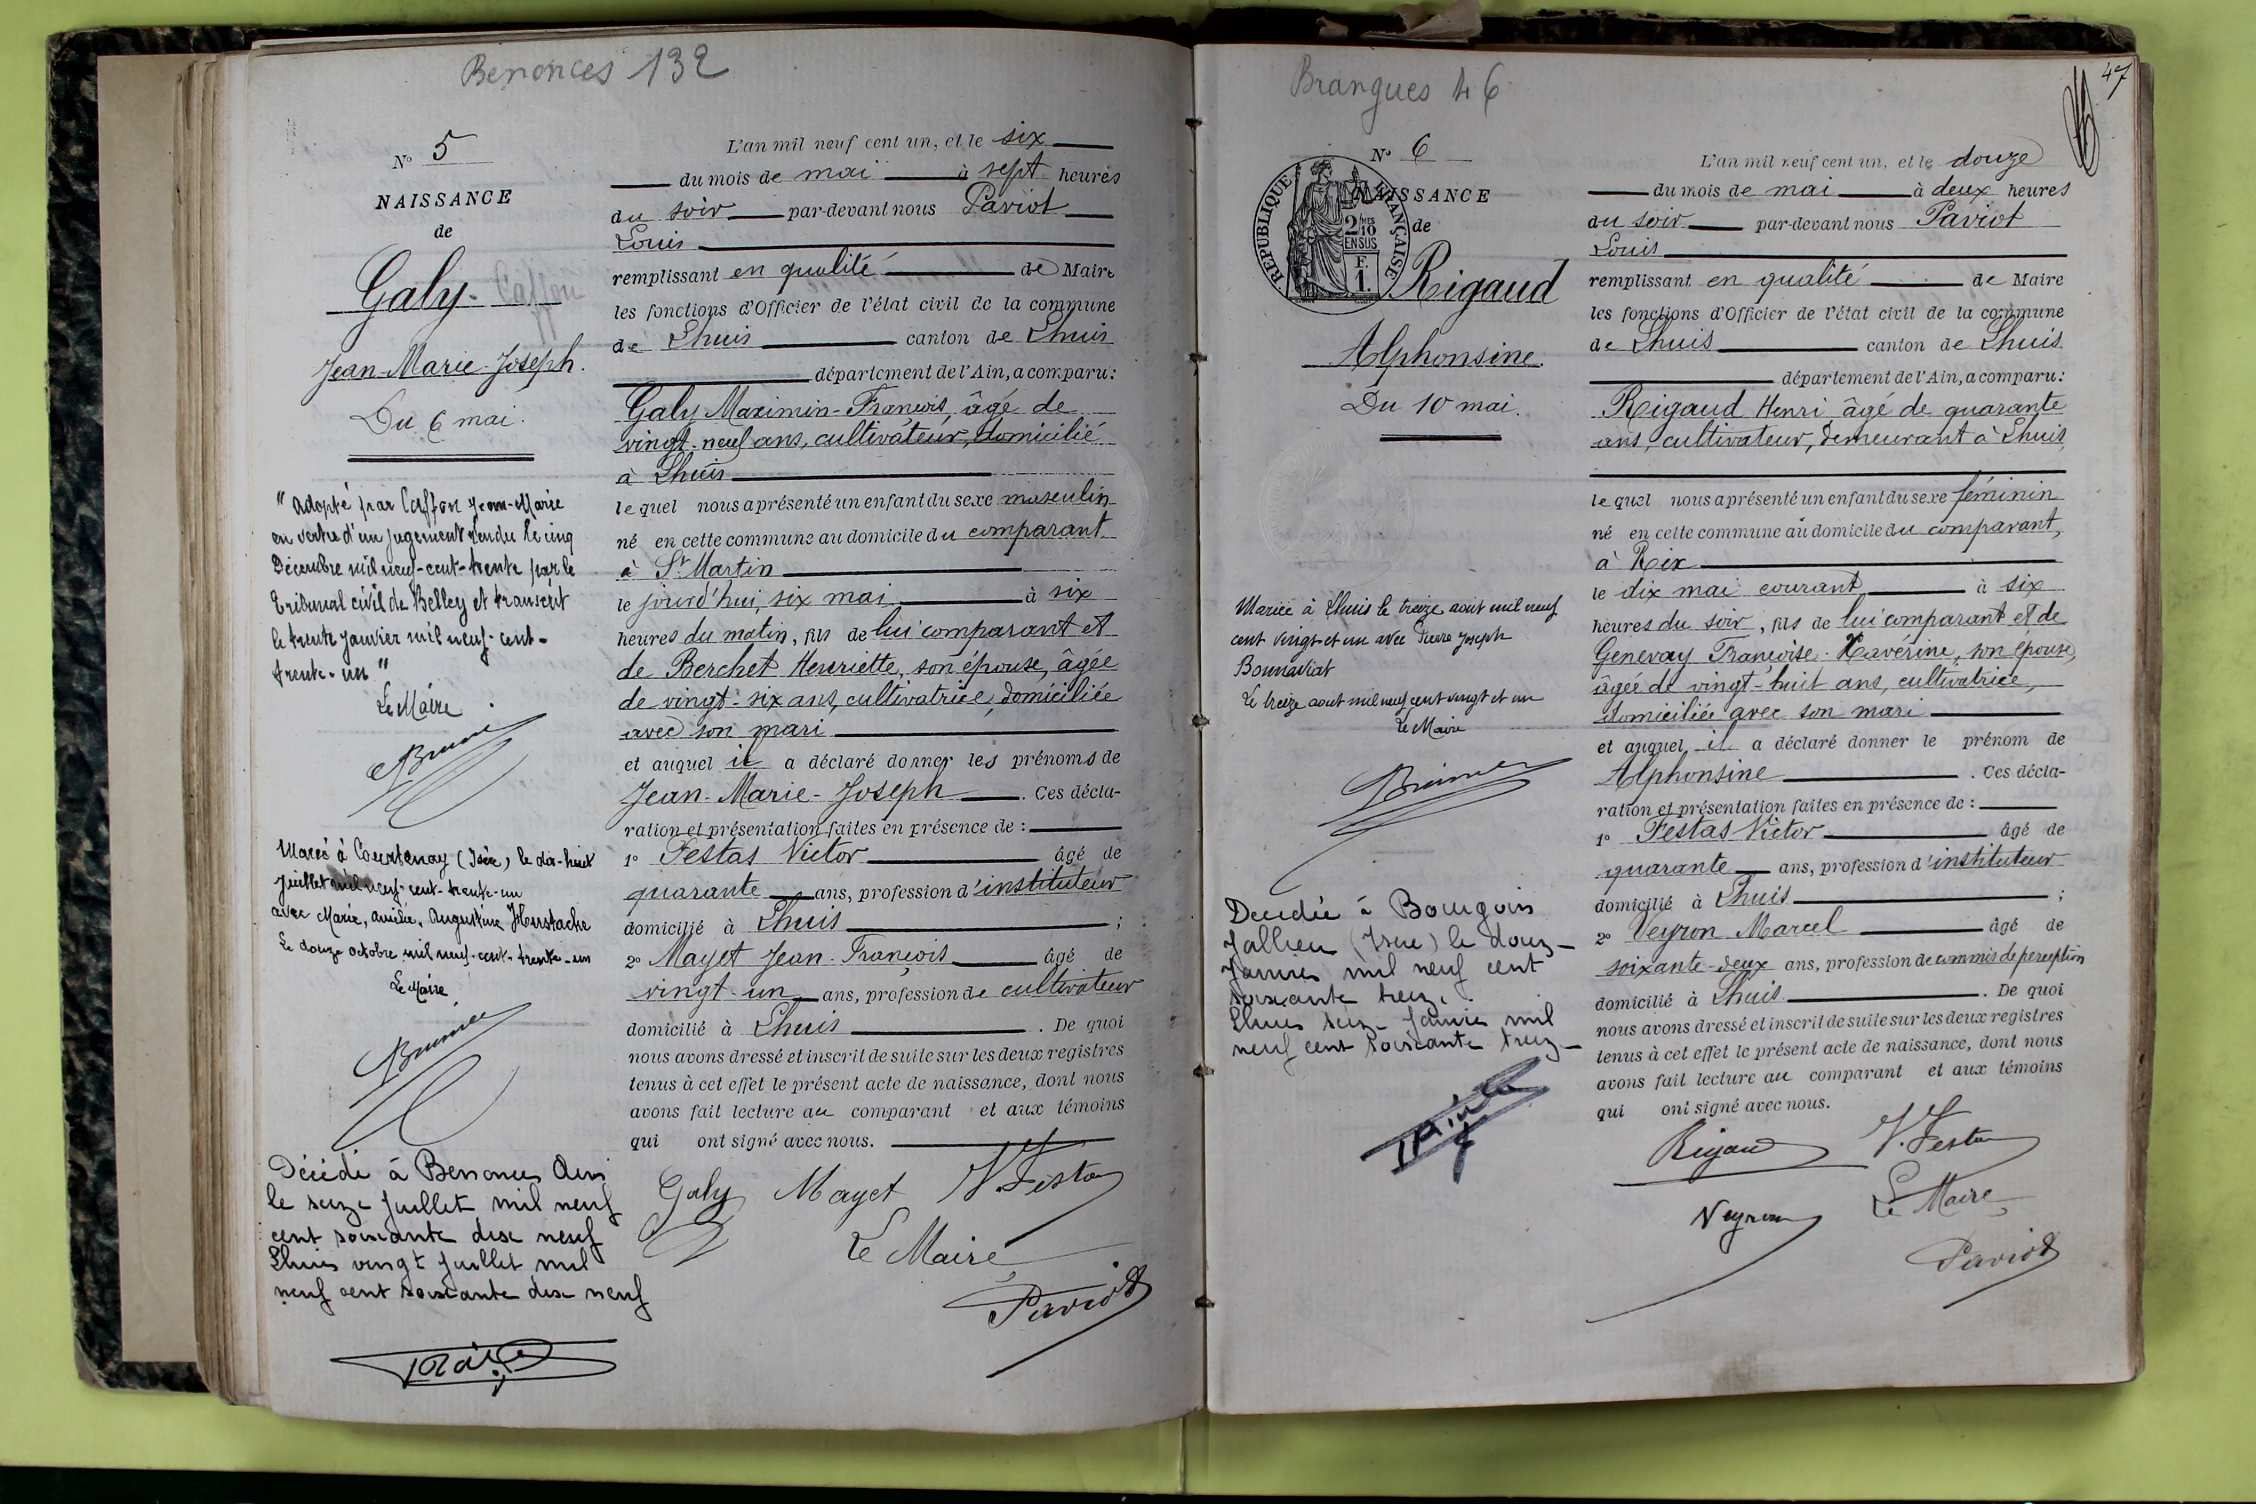 Benonces 132
N° 5
NAISSANCE
de
Galy- Caffon
Jean-Marie-Joseph.
Du 6 mai.
"Adopté par Caffon Jean-Marie
en vertu d'un jugement rendu le cinq
Décembre mil neuf-cent-trente par le
Tribunal civil de Belley et transcrit
le trente janvier mil neuf-cent-
trente-un"
Le Maire
Marié à Courtenay (Isère) le dix-huit
Juillet mil neuf-cent-trente-un
avec Marie, Augustine
Le douze octobre mil neuf-cent-trente-un
Le Maire
Décédé à Benonces Ain
le seize juillet mil neuf
cent soixante dix neuf
Lhuis vingt juillet mil
neuf cent soixante dix neuf
L'an mil neuf cent un, et le six
du mois de mai à sept heures
du soir par-devant nous Paviot
Louis
remplissant en qualité de Maire
les fonctions d'Officier de l'état civil de la commune
de Lhuis canton de Lhuis
département de l'Ain, a comparu:
Galy Maximin-François, âgé de
vingt-neuf ans, cultivateur, domicilié
à Lhuis
lequel nous a présenté un enfant du sexe masculin
né en cette commune au domicile du comparant
à St Martin
le jourd'hui, six mai à six
heures du matin, fils de lui comparant et
de Berchet Henriette, son épouse, âgée
de vingt-six ans, cultivatrice, domiciliée
avec son mari
et auquel il a déclaré donner les prénoms de
Jean-Marie-Joseph. Ces décla-
ration et présentation faites en présence de :
1° Festas Victor âgé de
quarante ans, profession d'instituteur
domicilié à Lhuis ;
2° Mayet Jean-François âgé de
vingt-un ans, profession de cultivateur
domicilié à Lhuis. De quoi
nous avons dressé et inscrit de suite sur les deux registres
tenus à cet effet le présent acte de naissance, dont nous
avons fait lecture au comparant et aux témoins
qui ont signé avec nous.
Galy Mayet V. Festas
Le Maire
Paviot
Brangues 46
47
N° 6
NAISSANCE
de
RÉPUBLIQUE FRANÇAISE
2/10 EN SUS
F. 1.
Rigaud
Alphonsine.
Du 10 mai.
Mariée à Lhuis le treize aout mil neuf
cent vingt-et un avec Pierre Joseph
Le treize aout mil neuf cent vingt et un
Le Maire
Décédée à Bourgoin
Jallieu (Isère) le douze
Janvier mil neuf cent
soixante treize.
Lhuis seize Janvier mil
neuf cent soixante treize
L'an mil neuf cent un, et le douze
du mois de mai à deux heures
du soir par-devant nous Paviot
Louis
remplissant en qualité de Maire
les fonctions d'Officier de l'état civil de la commune
de Lhuis canton de Lhuis
département de l'Ain, a comparu:
Rigaud Henri âgé de quarante
ans, cultivateur, demeurant à Lhuis,
lequel nous a présenté un enfant du sexe féminin
né en cette commune au domicile du comparant,
à Rix
le dix mai courant à six
heures du soir, fils de lui comparant et de
Genevay Françoise-Xavérine, son épouse,
âgée de vingt-huit ans, cultivatrice,
domiciliée avec son mari
et auquel il a déclaré donner le prénom de
Alphonsine. Ces décla-
ration et présentation faites en présence de :
1° Festas Victor âgé de
quarante ans, profession d'instituteur
domicilié à Lhuis ;
2° Veyron Marcel âgé de
soixante-deux ans, profession de commis de perception
domicilié à Lhuis. De quoi
nous avons dressé et inscrit de suite sur les deux registres
tenus à cet effet le présent acte de naissance, dont nous
avons fait lecture au comparant et aux témoins
qui ont signé avec nous.
Rigaud V. Festas
Veyron Le Maire
Paviot